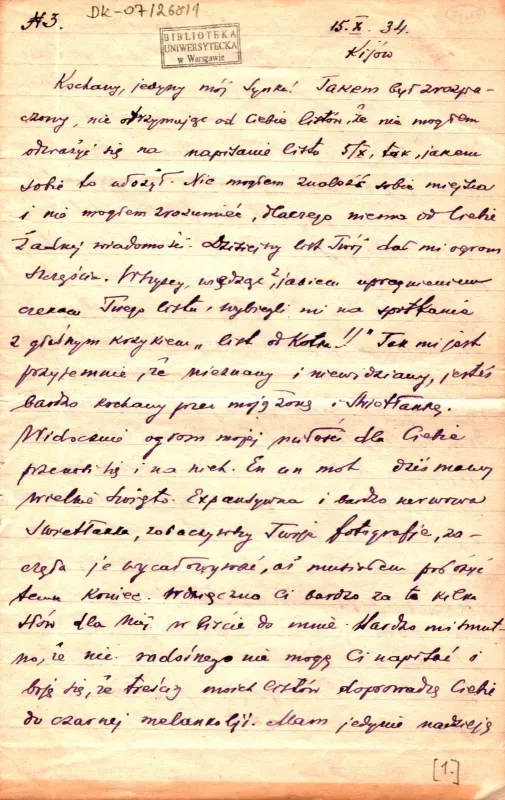 №3.
DK-07/268/1
BIBLIOTEKA
UNIWERSYTECKA
w Warszawie
15.X.34.
Kijów
Kochany, jedyny mój Synku! Takem był zrozpa-
czony, nie otrzymując od Ciebie listów, że nie mogłem
odważyć się na napisanie listu 5/X, tak, jakem
sobie to ułożył. Nie mogłem znaleźć sobie miejsca
i nie mogłem zrozumieć, dlaczego niema od Ciebie
żadnej wiadomości. Dzisiejszy list Twój dał mi ogrom
szczęścia. Wszyscy, wiedząc, z jakiem upragnieniem
czekam Twego listu, wybiegli mi na spotkanie
z głośnym krzykiem „list od Kotka!!" Tak mi jest
przyjemnie, że nieznany i niewidziany, jesteś
bardzo kochany przez moją żonę i Swietłankę.
Widocznie ogrom mojej miłości dla Ciebie
przenosi się i na nich. En un mot dziś mamy
wielkie święto. Expansywna i bardzo nerwowa
Swietłanka, zobaczywszy Twoje fotografje, za-
częła je wycałowywać, aż musiałem położyć
temu koniec. Wdzięczna Ci bardzo za te kilka
słów dla Niej w liście do mnie. Bardzo mi smut-
no, że nic radośnego nie mogę Ci napisać i
boję się, że treścią moich listów doprowadzę Ciebie
do czarnej melankolji. Mam jedynie nadzieję
[1.]